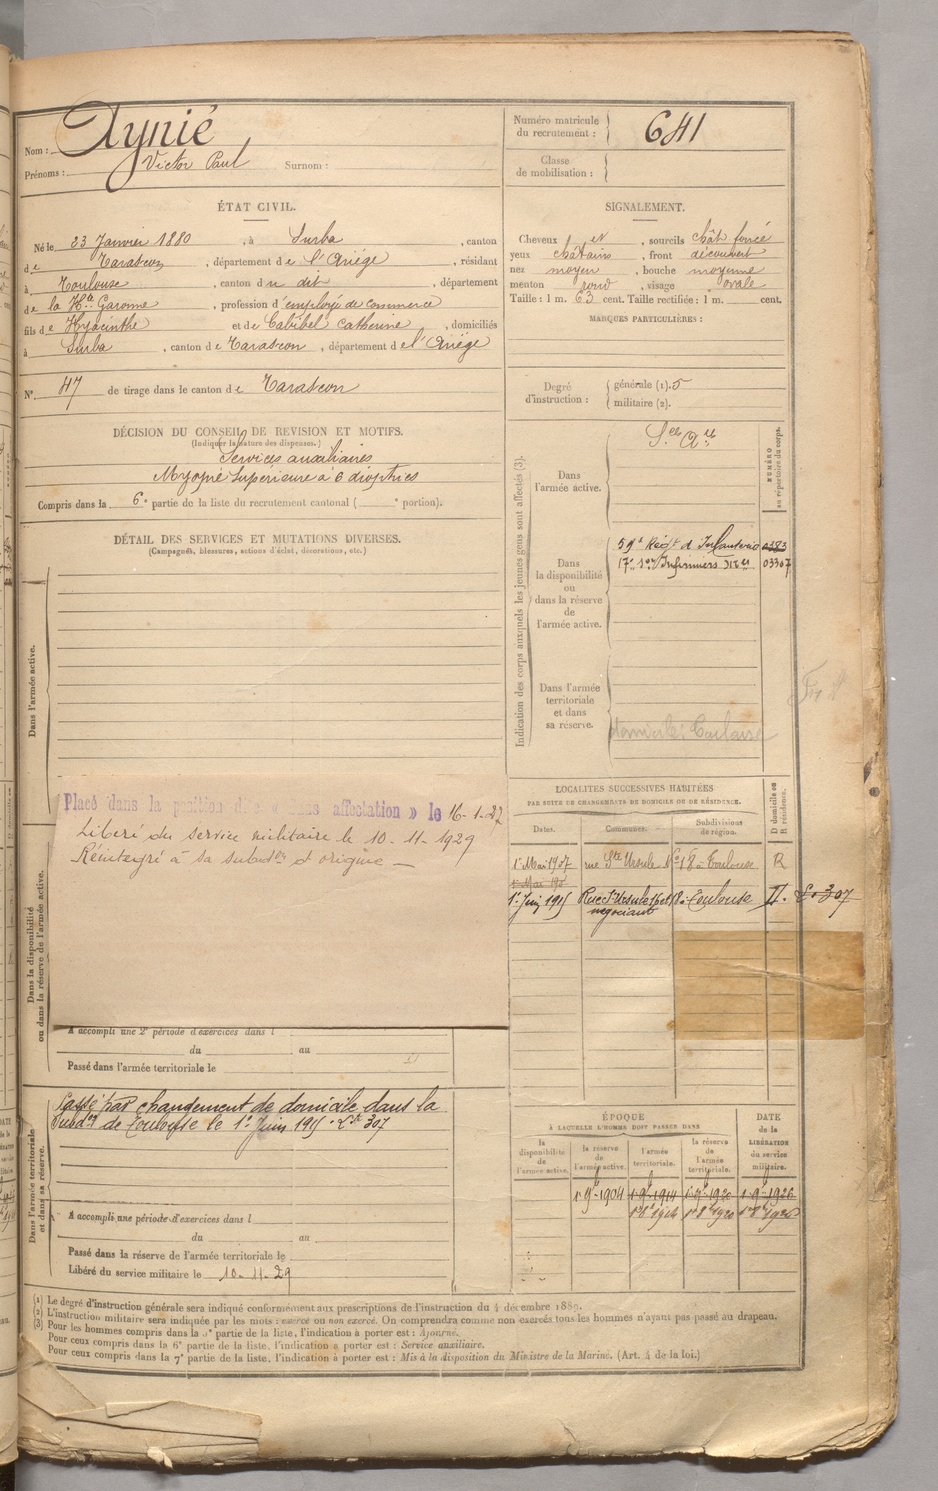 Nom : Aynié
Prénoms : Victor Paul Surnom :
Numéro matricule du recrutement : 641
Classe de mobilisation :
ÉTAT CIVIL.
Né le 23 Janvier 1880 , à Surba , canton
de Tarascon , département de l'Ariége , résidant
à Toulouse , canton du dit , département
de la Hte Garonne , profession d'employé de commerce
fils de Hyacinthe et de Cabibel Catherine , domiciliés
à Surba , canton de Tarascon , département de l'Ariége
N° 47 de tirage dans le canton de Tarascon
SIGNALEMENT.
Cheveux et , sourcils chât foncé
yeux châtains , front découvert
nez moyen , bouche moyenne
menton rond , visage ovale
Taille : 1 m. 63 cent. Taille rectifiée : 1 m. cent.
MARQUES PARTICULIÈRES :
Degré d'instruction : générale (1). 5
militaire (2).
DÉCISION DU CONSEIL DE REVISION ET MOTIFS.
(Indiquer la nature des dispenses.)
Services auxiliaires
Myopie supérieure à 6 dioptries
Compris dans la 6e partie de la liste du recrutement cantonal ( e portion).
DÉTAIL DES SERVICES ET MUTATIONS DIVERSES.
(Campagnes, blessures, actions d'éclat, décorations, etc.)
Dans l'armée active.
Placé dans la position de « sans affectation » le 16-1-27
Libéré du service militaire le 10-11-1929
Réintegré à sa subdon d'origine
Dans la disponibilité ou dans la réserve de l'armée active.
A accompli une 2e période d'exercices dans l
du au
Passé dans l'armée territoriale le
Passé par changement de domicile dans la
Subdon de Toulouse le 1er Juin 1915 307
Dans l'armée territoriale et dans sa réserve.
A accompli une période d'exercices dans l
du au
Passé dans la réserve de l'armée territoriale le
Libéré du service militaire le 10-11-29
Indication des corps auxquels les jeunes gens sont affectés (3).
NUMÉRO au répertoire du corps.
Dans l'armée active. Sce Are
Dans la disponibilité ou dans la réserve de l'armée active.
59e Régt d'Infanterie 0383
17e Son Infirmiers Mres 03307
Dans l'armée territoriale et dans sa réserve.
LOCALITÉS SUCCESSIVES HABITÉES
PAR SUITE DE CHANGEMENTS DE DOMICILE OU DE RÉSIDENCE.
Dates. Communes. Subdivisions de région. D domicile ou R résidence.
1er Mai 1907 rue Ste Ursule No 18 à Toulouse R
1er Juin 1915 Rue Ste Ursule 18 à Toulouse D. 307
négociant
ÉPOQUE
À LAQUELLE L'HOMME DOIT PASSER DANS
DATE de la LIBÉRATION du service militaire.
la disponibilité de l'armée active. la réserve de l'armée active. l'armée territoriale. la réserve de l'armée territoriale.
1-9-1904 1-9-1914 1-9-1920 1-9-1926
1er 8 1914 1er 8 1920 1er 8 1926
(1) Le degré d'instruction générale sera indiqué conformément aux prescriptions de l'instruction du 4 décembre 1889.
(2) L'instruction militaire sera indiquée par les mots : exercé ou non exercé. On comprendra comme non exercés tous les hommes n'ayant pas passé au drapeau.
(3) Pour les hommes compris dans la 5e partie de la liste, l'indication à porter est : Ajourné.
Pour ceux compris dans la 6e partie de la liste, l'indication à porter est : Service auxiliaire.
Pour ceux compris dans la 7e partie de la liste, l'indication à porter est : Mis à la disposition du Ministre de la Marine. (Art. 4 de la loi.)